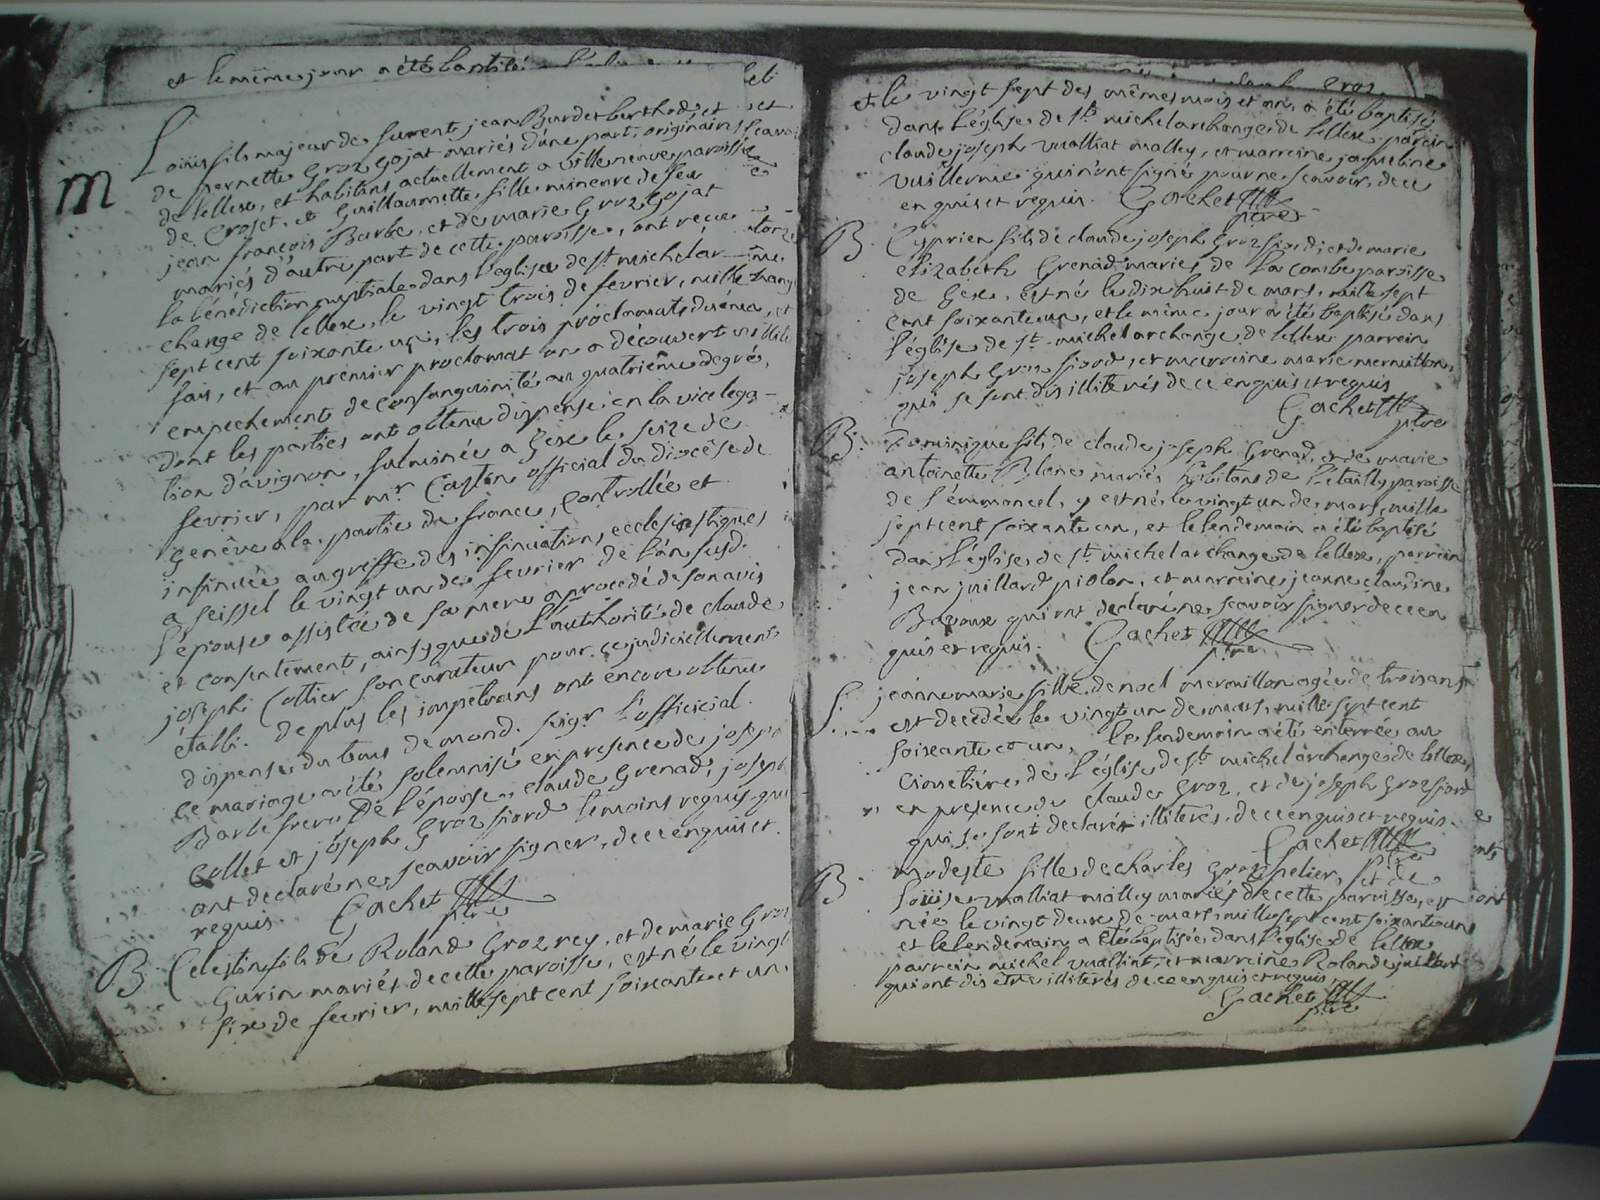 et le même jour a été baptisé
M
Loüis fils majeur de furent jean Burdet berthod, et
de pernette Groz Gojat mariés d'une part, originaires
de lellex, et habitans actuellement a villeneuve paroisse
de Croset, et Guillaumette fille mineure de feu
jean françois Barbe, et de marie Groz Gojat
mariés d'autre part de cette paroisse, ont reçu
la bénédiction nuptiale dans l'eglise de st michel ar-
change de lellex, le vingt trois de fevrier, mille
sept cent soixante un, les trois proclamats duement
fais, et au premier proclamat on a découvert un
empechement de consanguinité au quatrième degré,
dont les parties ont obtenu dispense en la vice lega-
tion d'avignon, fulminée a Gex le seize de
fevrier, par mr Castin official du diocèse de
genêve a la partie de france, controllée et
insinuée au greffe des insinuations ecclesiastiques
a seissel le vingt un de fevrier de l'an susd.
l'épouse assistée de sa mere a procedé de son avis
et consentement, ainsy que de l'authorité de claude
joseph Collier son curateur pour ce judiciellement
établi. de plus les impetrans ont encore obtenu
dispense du tems de mond. seigr l'officicial.
ce mariage a été solemnisé en presence de joseph
Barbe frere de l'épouse, claude Grenad, joseph
Collet et joseph Groz fiord temoins requis qui
ont declaré ne scavoir signer, de ce enquis et
requis. Gachet ptre
B Celestin fils de Roland Groz rey, et de marie Groz
Gurin mariés de cette paroisse, est né le vingt
six de fevrier, mille sept cent soixante et un,
et le vingt sept des mêmes mois et an, a été baptisé
dans l'église de st michel archange de lellex, parein
claude joseph vualliat malley, et marreine jaqueline
vuillermie qui n'ont signé pour ne scavoir, de ce
enquis et requis. Gachet ptre
B. Cyprien fils de claude joseph Groz fix dit, et de marie
elizabeth Grenad mariés de la combe paroisse
de Gex, est né le dix huit de mars, mille sept
cent soixante un, et le même jour a été baptisé dans
l'église de st michel archange de lellex parrein
joseph Groz fiord, et marreine marie mermillon,
qui se sont dis illiterés de ce enquis et requis
Gachet ptre
B. Dominique fils de claude joseph Grenad, et de marie
antoinette Blanc mariés habitans de l'étailly paroisse
de l'emmoncel, y est né le vingt un de mars, mille
sept cent soixante un, et le lendemain a été baptisé
dans l'église de st michel archange de lellex, parrein
jean juillard piolon, et marreine jeanne claudine
Bavoux qui ont declaré ne scavoir signer de ce en
quis et requis. Gachet ptre
S. jeanne marie fille de noel mermillon agée de trois ans
est decedée le vingt un de mars, mille sept cent
soixante et un, le lendemain a été enterrée au
cimetière de l'église de st michel archange de lellex,
en presence de claude Groz, et de joseph Groz fiord
qui se sont declarés illiterés, de ce enquis et requis.
Gachet ptre
B. modeste fille de charles Groz pelier, et de
Loüise vualliat malley mariés de cette paroisse, est
née le vingt deux de mars mille sept cent soixante un
et le lendemain a été baptisée dans l'eglise de lellex
parrein michel vualliat, et marreine Rolande juillard
qui ont dis être illiterés de ce enquis et requis
Gachet ptre